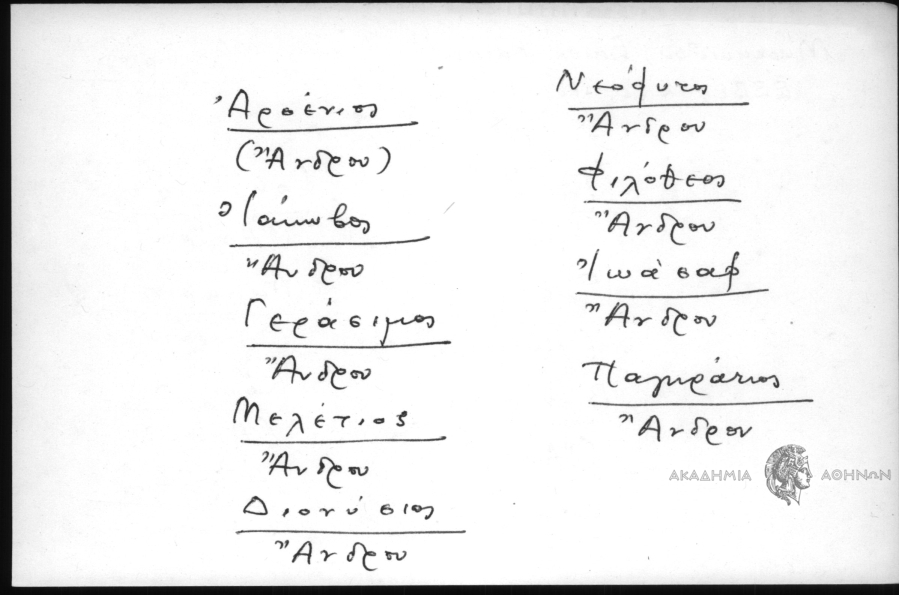 Ἀρσένιος
(Ἄνδρου)
Ἰάκωβος
Ἄνδρου
Γεράσιμος
Ἄνδρου
Μελέτιος
Ἄνδρου
Διονύσιος
Ἄνδρου
Νεόφυτος
Ἄνδρου
Φιλόθεος
Ἄνδρου
Ἰωάσαφ
Ἄνδρου
Παγκράτιος
Ἄνδρου
ΑΚΑΔΗΜΙΑ ΑΘΗΝΩΝ